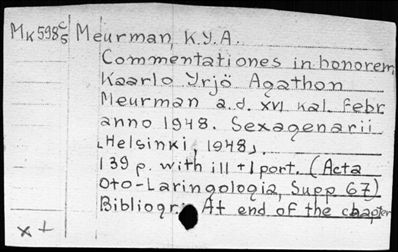 MK598 C/S Meurman, K.Y.A.
Commentationes in honorem
Kaarlo Yrjö Agathon
Meurman a.d. XVI kal. Febr
anno 1948. Sexagenarii
[Helsinki, 1948].
139 p. with ill + 1 port. (Acta
Oto-Laringologia, Supp 67)
Bibliogr. At end of the chapter
x +